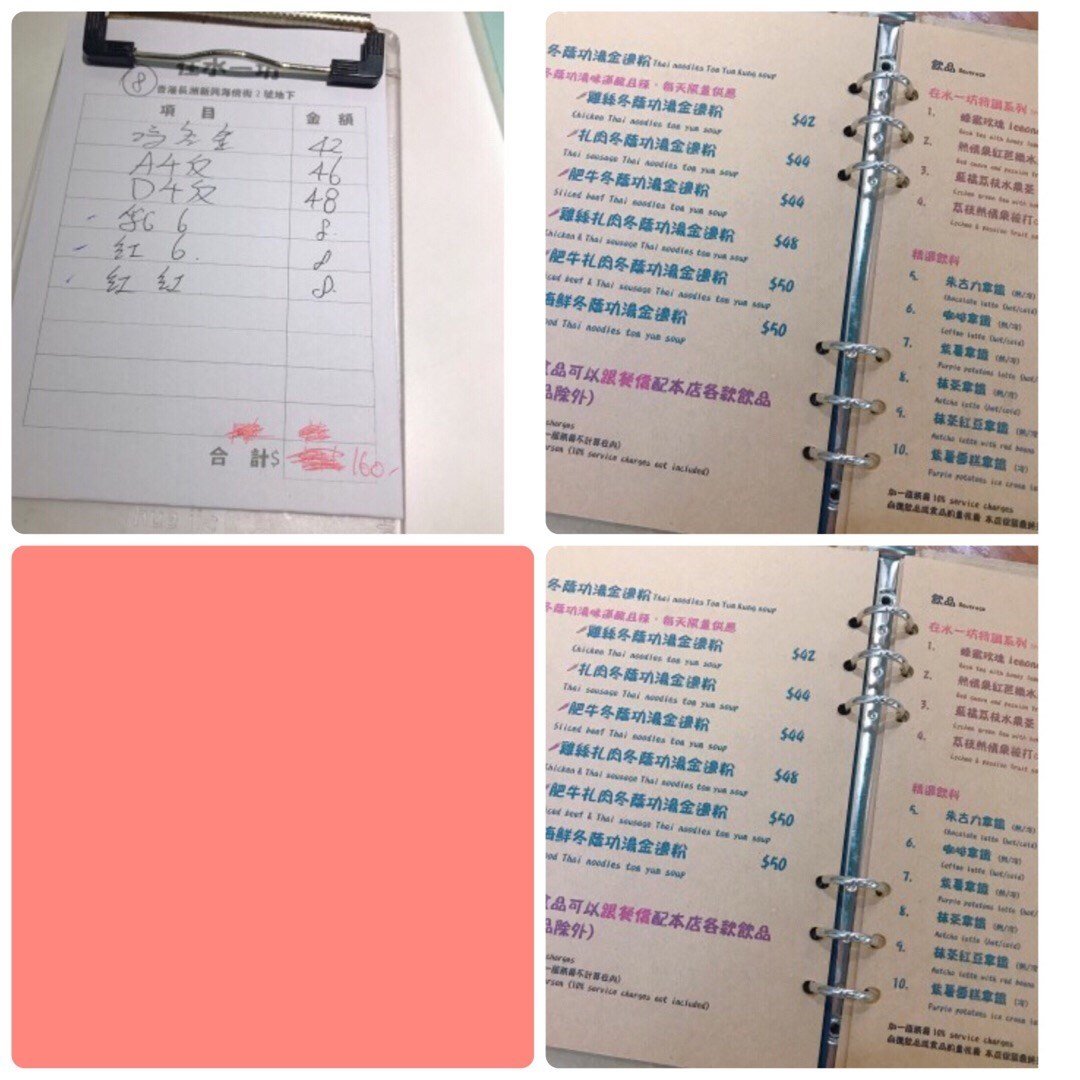 在水一坊
8
香港長洲新興海傍街2號地下
項目 金額
42
A4 46
D4 48
6 8
紅 6. 8
紅 紅 8
合計$ 160.-
冬蔭功湯金邊粉 Thai noodles Tom Yum Kung soup
冬蔭功湯味道酸且辣，每天限量供應
雞絲冬蔭功湯金邊粉 $42
Chicken Thai noodles tom yum soup
扎肉冬蔭功湯金邊粉 $44
Thai sausage Thai noodles tom yum soup
肥牛冬蔭功湯金邊粉 $44
Sliced beef Thai noodles tom yum soup
雞絲扎肉冬蔭功湯金邊粉 $48
Chicken & Thai sausage Thai noodles tom yum soup
肥牛扎肉冬蔭功湯金邊粉 $50
iced beef & Thai sausage Thai noodles tom yum soup
海鮮冬蔭功湯金邊粉 $50
ood Thai noodles tom yum soup
品可以跟餐價配本店各款飲品
品除外)
charges
(10% service charges not included)
飲品 Beverage
在水一坊特調系列
1. 蜂蜜玫瑰 lemona
Rose tea with honey lemon
2. 熱情果紅芭纖水
Red guava and passion fr
3. 藍橘荔枝水果茶
Lychee green tea with
4. 荔枝熱情果梳打
Lychee & Passion fruit so
精選飲料
5. 朱古力拿鐵 (熱/凍)
Chocolate latte (hot/cold)
6. 咖啡拿鐵 (熱/凍)
Coffee latte (hot/cold)
7. 紫薯拿鐵 (熱/凍)
Purple potatoes latte (hot/
8. 抹茶拿鐵 (熱/凍)
Matcha latte (hot/cold)
9. 抹茶紅豆拿鐵 (熱/凍)
Matcha latte with red beans
10. 紫薯雪糕拿鐵 (凍)
Purple potatoes ice cream la
加一服務費 10% service charges
冬蔭功湯金邊粉 Thai noodles Tom Yum Kung soup
冬蔭功湯味道酸且辣，每天限量供應
雞絲冬蔭功湯金邊粉 $42
Chicken Thai noodles tom yum soup
扎肉冬蔭功湯金邊粉 $44
Thai sausage Thai noodles tom yum soup
肥牛冬蔭功湯金邊粉 $44
Sliced beef Thai noodles tom yum soup
雞絲扎肉冬蔭功湯金邊粉 $48
Chicken & Thai sausage Thai noodles tom yum soup
肥牛扎肉冬蔭功湯金邊粉 $50
iced beef & Thai sausage Thai noodles tom yum soup
海鮮冬蔭功湯金邊粉 $50
ood Thai noodles tom yum soup
品可以跟餐價配本店各款飲品
品除外)
charges
(10% service charges not included)
飲品 Beverage
在水一坊特調系列
1. 蜂蜜玫瑰 lemona
Rose tea with honey lemon
2. 熱情果紅芭纖水
Red guava and passion fr
3. 藍橘荔枝水果茶
Lychee green tea with
4. 荔枝熱情果梳打
Lychee & Passion fruit so
精選飲料
5. 朱古力拿鐵 (熱/凍)
Chocolate latte (hot/cold)
6. 咖啡拿鐵 (熱/凍)
Coffee latte (hot/cold)
7. 紫薯拿鐵 (熱/凍)
Purple potatoes latte (hot/
8. 抹茶拿鐵 (熱/凍)
Matcha latte (hot/cold)
9. 抹茶紅豆拿鐵 (熱/凍)
Matcha latte with red beans
10. 紫薯雪糕拿鐵 (凍)
Purple potatoes ice cream la
加一服務費 10% service charges